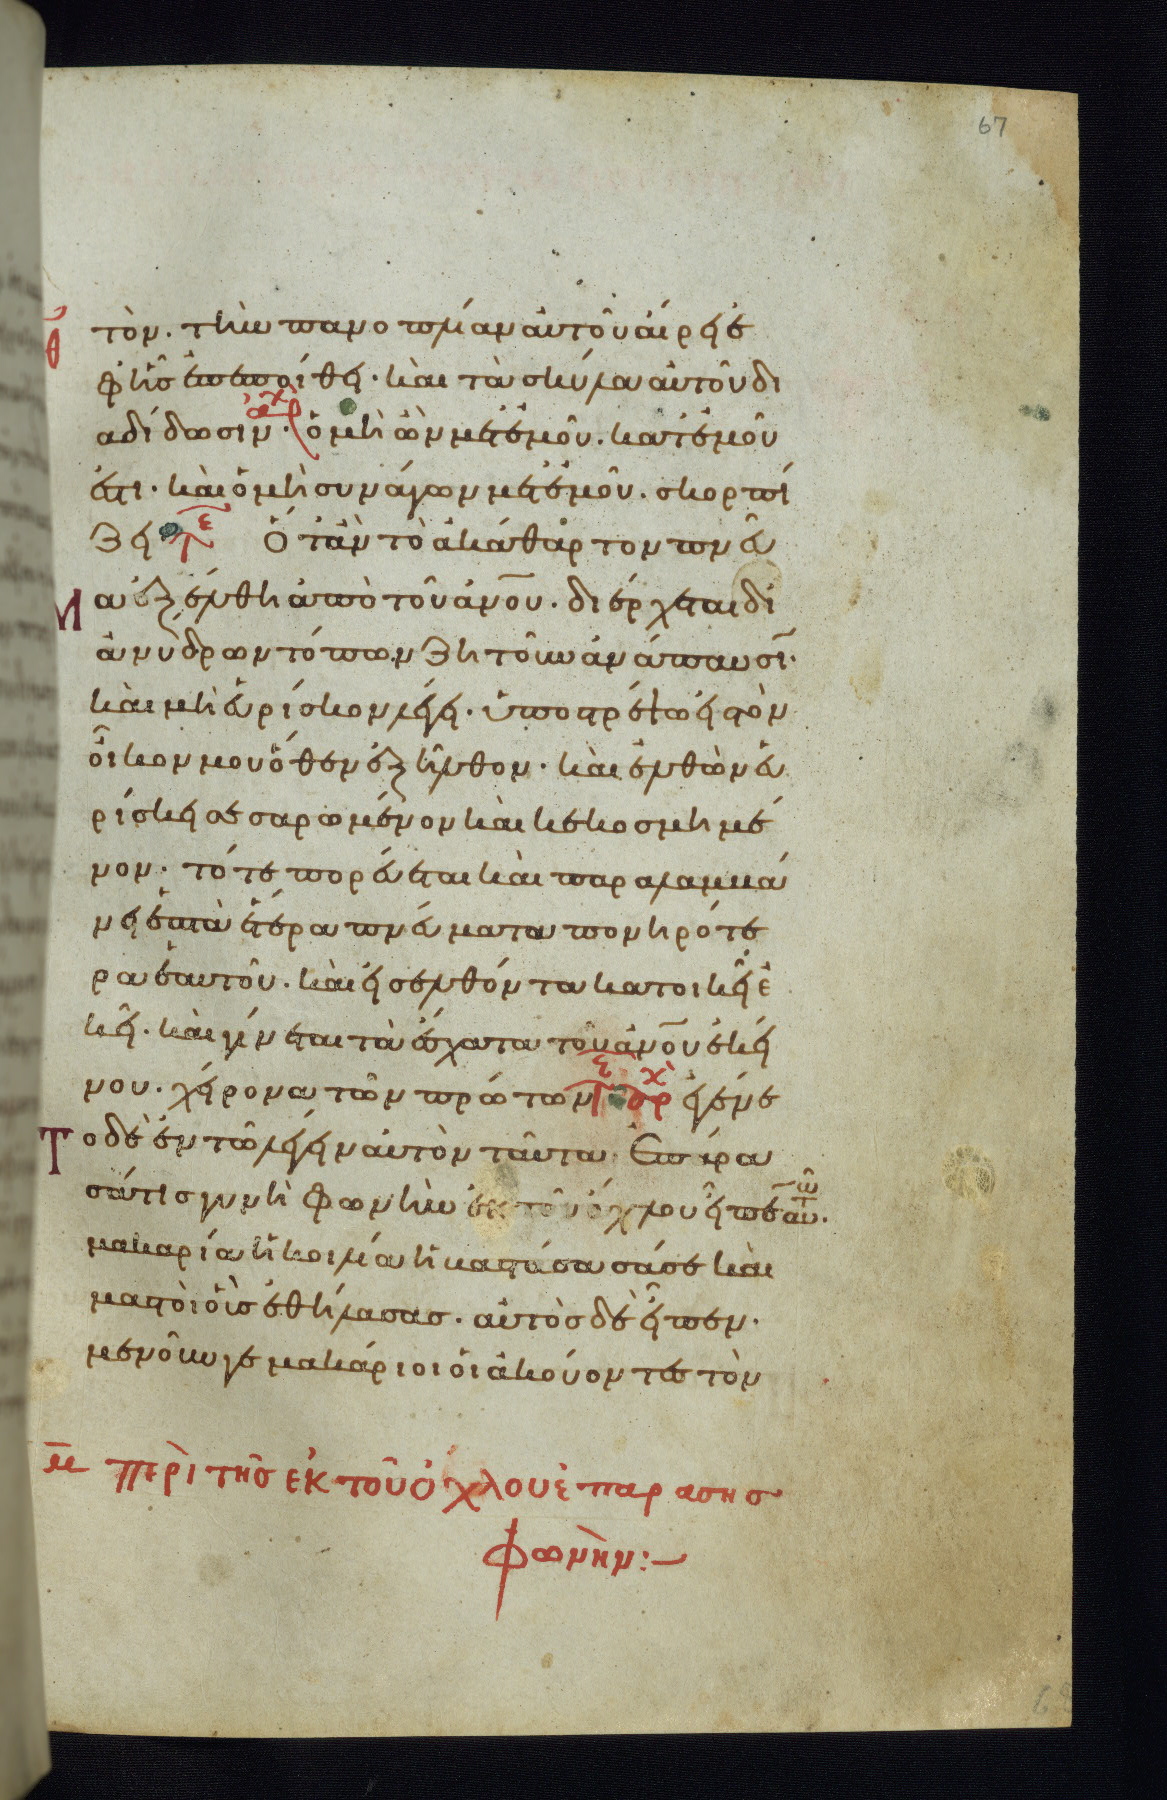 67
τὸν. τὴν πανοπλίαν αὐτοῦ αἴρει ἐ
φ' ἧς ἐπεποίθει. καὶ τὰ σκύλα αὐτοῦ δι
αδίδωσιν. ἀρχ ὁ μὴ ὢν μετ' ἐμοῦ. κατ' ἐμοῦ
ἐστι. καὶ ὁ μὴ συνάγων μετ' ἐμοῦ. σκορπί
ζει τε Ὅταν τὸ ἀκάθαρτον πνεῦ
μα ἐξέλθη ἀπὸ τοῦ ἀνου. διέρχεται δι
ἀνύδρων τόπων ζητοῦν ἀνάπαυσι̅.
καὶ μὴ εὑρίσκον λέγει. ὑποστρέψω εἰς τὸν
οἶκον μου ὅθεν ἐξῆλθον. καὶ ἐλθὸν εὑ
ρίσκει σεσαρωμένον καὶ κεκοσμημέ
νον. τότε πορεύεται καὶ παραλαμβά
νει ἑπτὰ ἕτερα πνεύματα πονηρότε
ρα ἑαυτοῦ. καὶ εἰσελθόντα κατοικεῖ ἐ
κεῖ. καὶ γίνεται τὰ ἔσχατα τοῦ ἀνου ἐκεί
νου. χείρονα τῶν πρώτων τε αρχ ἐγένε
Το δὲ ἐν τῷ λέγειν αὐτὸν ταῦτα. Ἐπάρα
σά τις γυνὴ φωνὴν ἐκ τοῦ ὄχλου εἶπεν αὐτῶ.
μακαρία ἡ κοιλία ἡ βαστάσασά σε καὶ
μαστοὶ οἷς ἐθήλασας. αὐτὸς δὲ εἶπεν.
μενοῦνγε μακάριοι οἱ ἀκούοντες τὸν
μ̅ περὶ τῆς ἐκ τοῦ ὄχλου ἐπαράσης
φωνήν:–